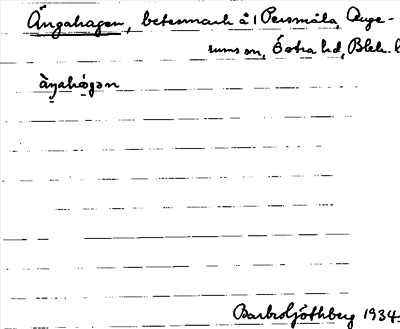 Ängahagen, betesmark å 1 Persmåla, Auge-
rums sn, Östra hd, Blek. l
Barbro Göthberg 1934.